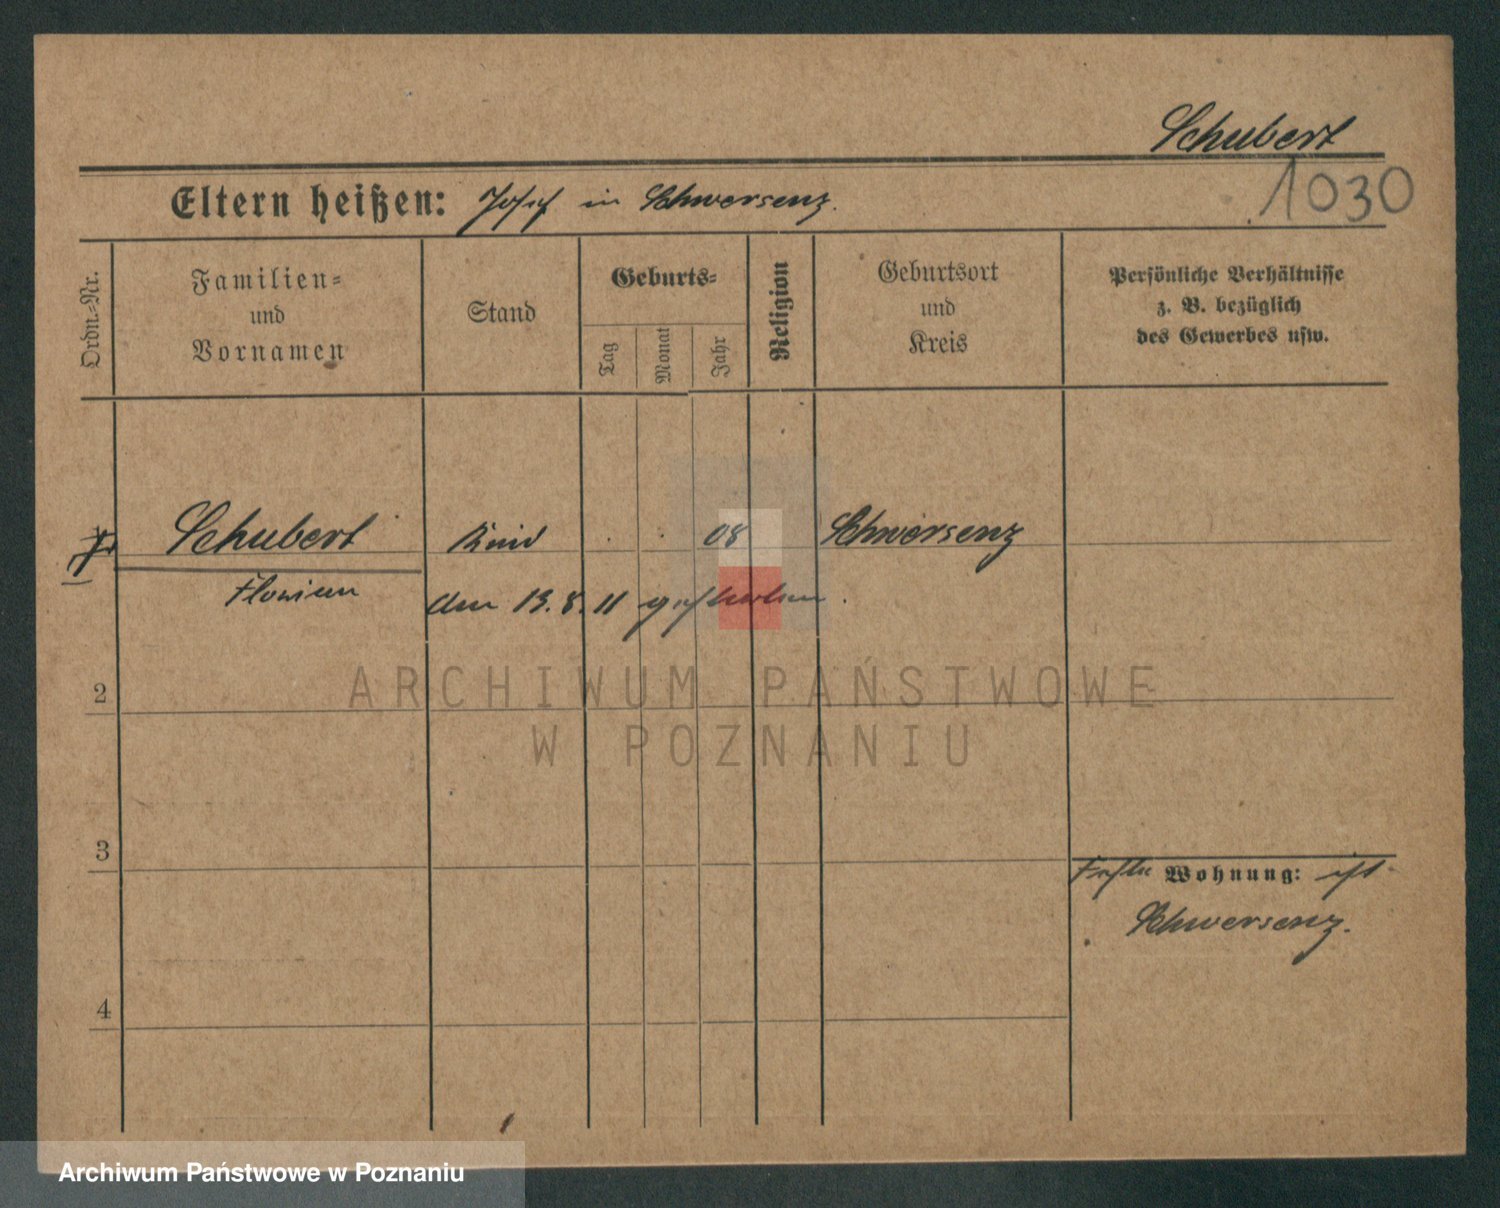 Schubert
1030
Eltern heißen: Josef in Schwersenz.
Ordn.-Nr.
Familien-
und
Vornamen
Stand
Geburts-
Tag
Monat
Jahr
Religion
Geburtsort
und
Kreis
Persönliche Verhältnisse
z. B. bezüglich
des Gewerbes usw.
Schubert Kind 08 Schwersenz
Florian
den 13. 8. 11 gestorben.
2
ARCHIWUM PAŃSTWOWE
W POZNANIU
3
Wohnung: ist
Schwersenz.
4
Archiwum Państwowe w Poznaniu